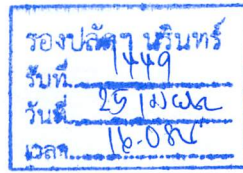 รองปลัดฯ นรินทร์
รับที่ 1449
วันที่ 25 เมย
เวลา 16.08น